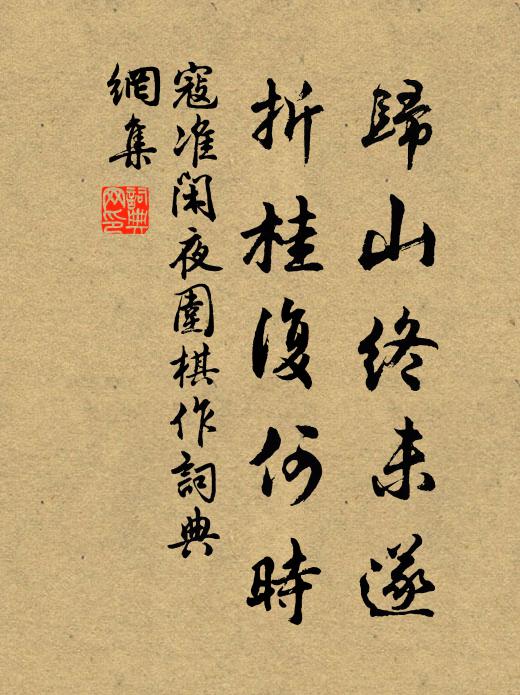 歸山終未遂
折桂復何時
寇准閑夜圍棋作詞典
網集
詞典網印